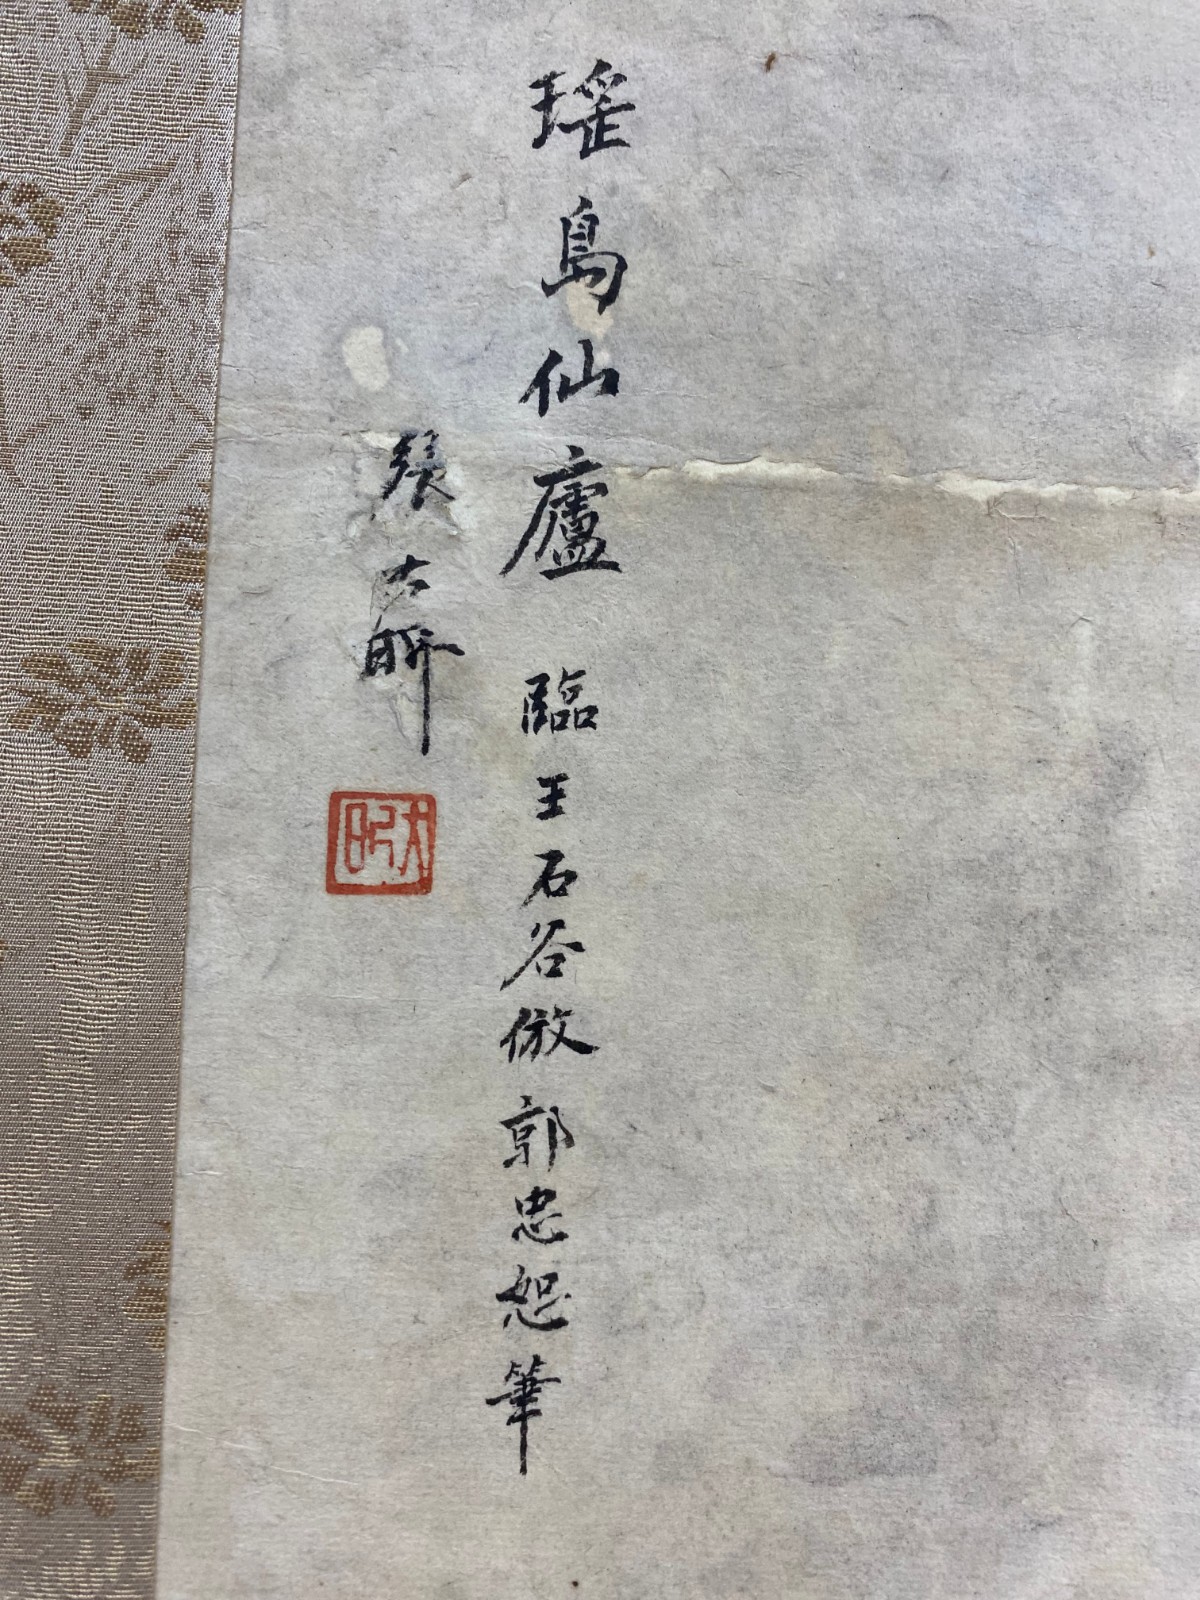 瑤島仙廬 臨王石谷倣郭忠恕筆
張大昕
大昕